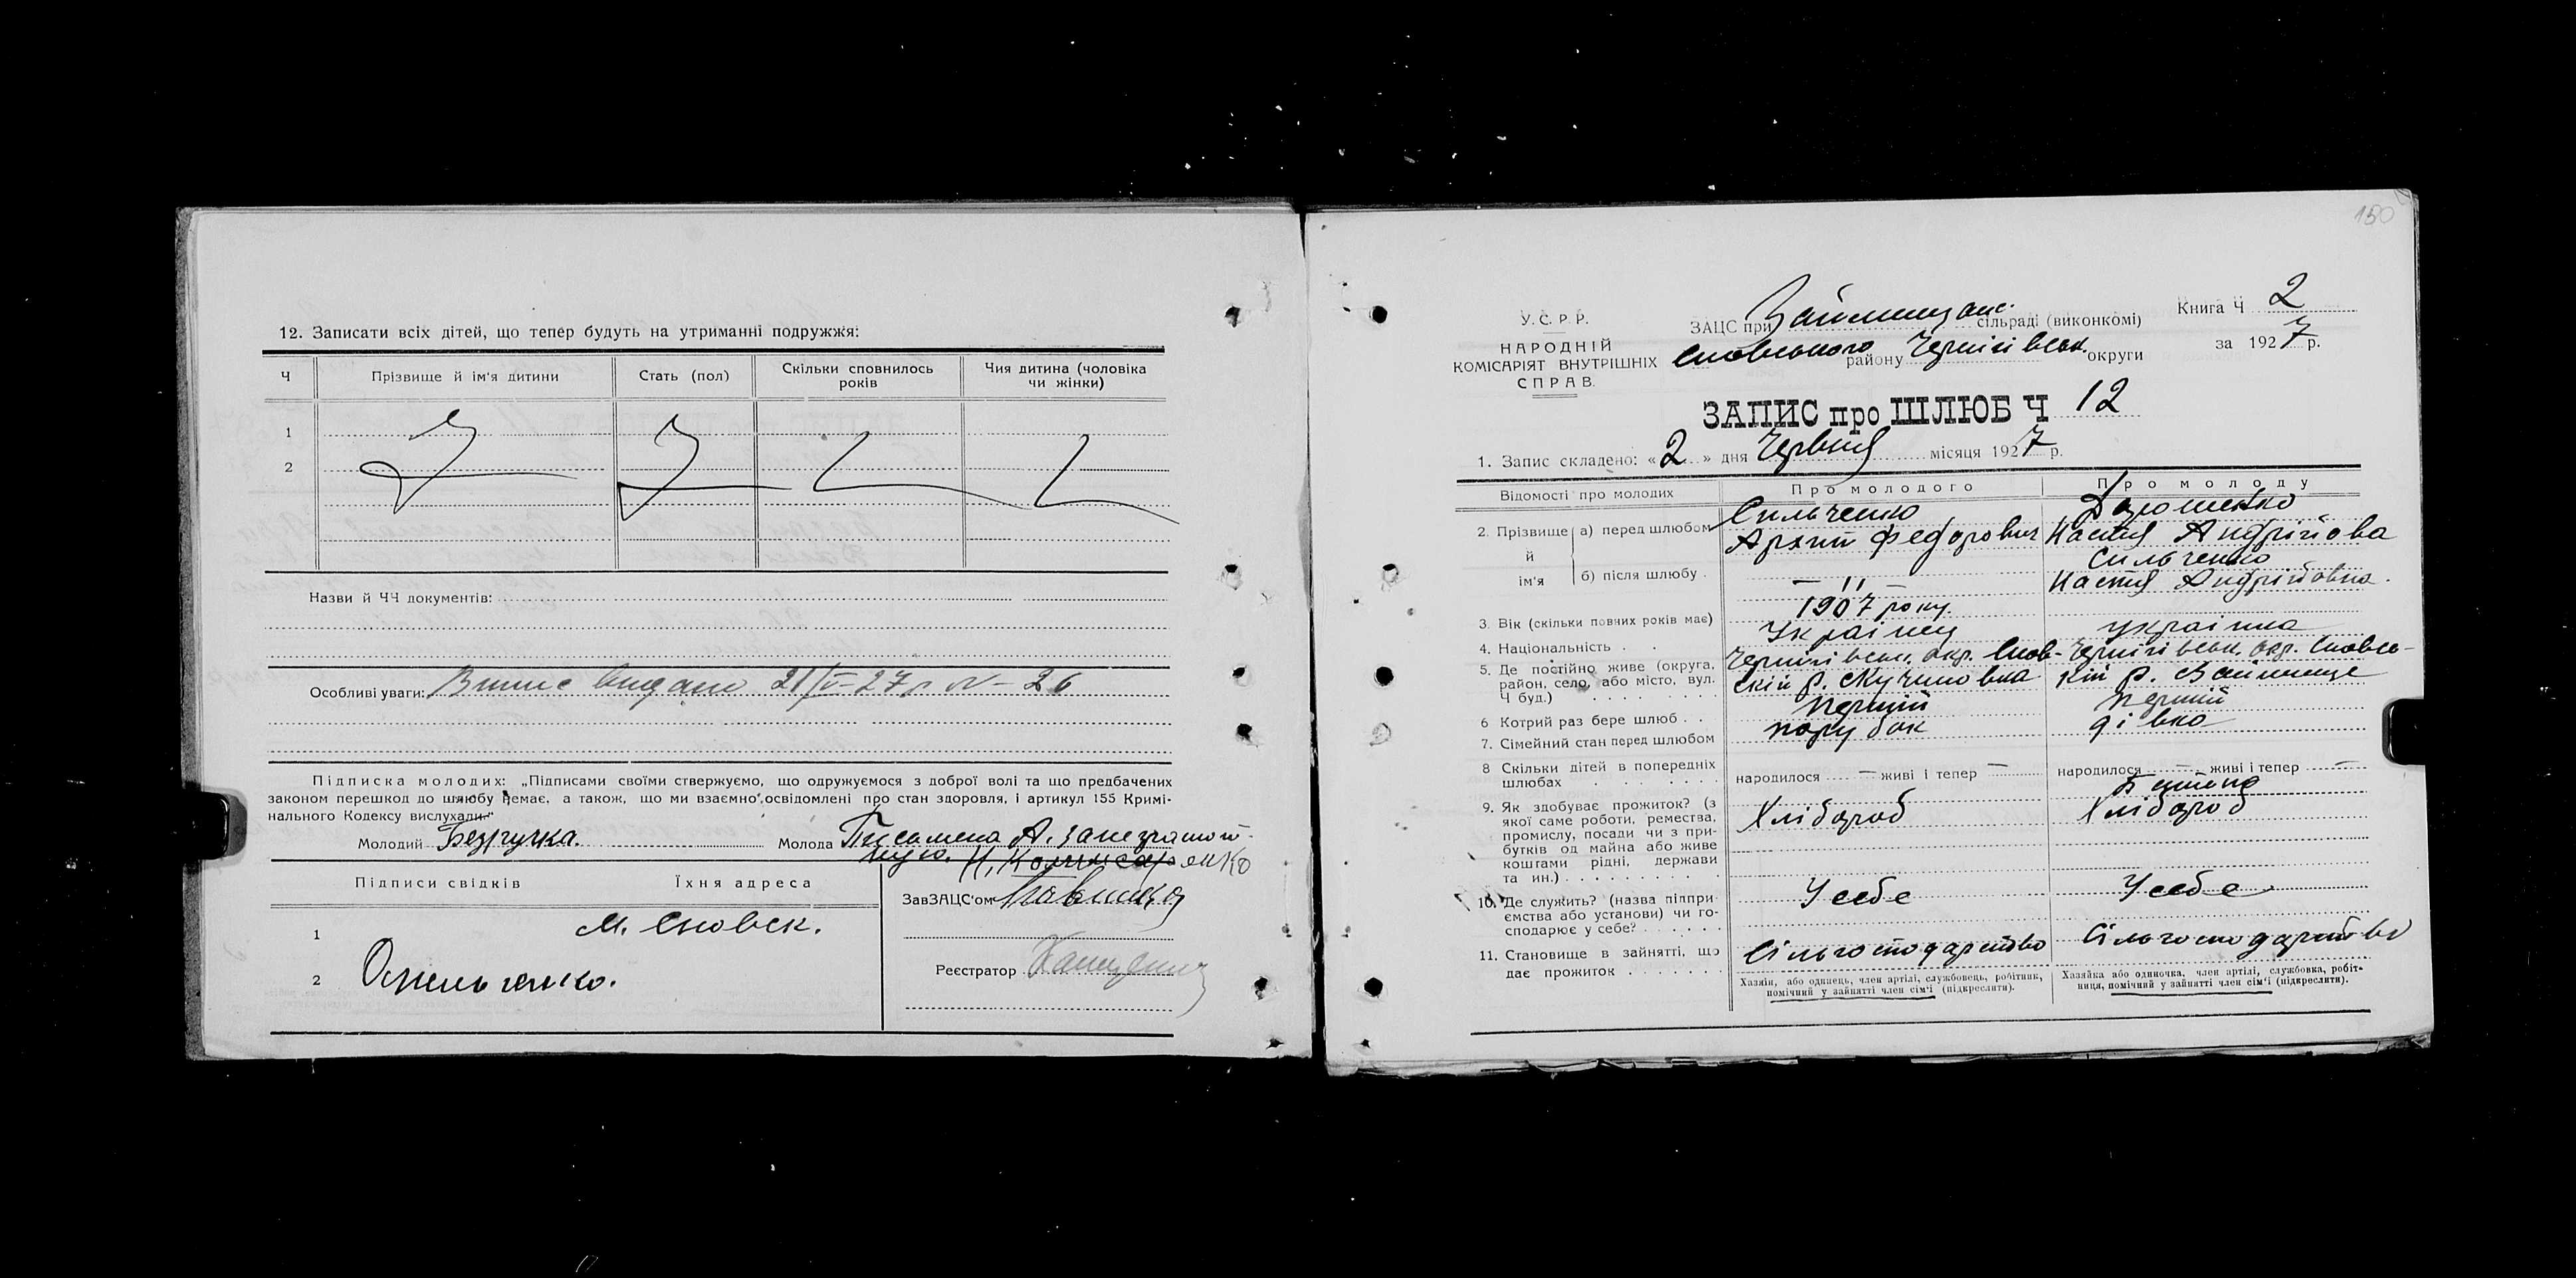 12. Записати всіх дітей, що тепер будуть на утриманні подружжя:
Ч Прізвище й ім'я дитини Стать (пол) Скільки сповнилось років Чия дитина (чоловіка чи жінки)
1
2
Назви й ЧЧ документів:
Особливі уваги: Випис видано 21/V-27р N-26
Підписка молодих: „Підписами своїми стверджуємо, що одружуємося з доброї волі та що предбачених
законом перешкод до шлюбу немає, а також, що ми взаємно освідомлені про стан здоровля, і артикул 155 Кримі-
нального Кодексу вислухали."
Молодий Безручка. Молода Письмена А. за неграмот-
ную. Н. Комисаренко
Підписи свідків Їхня адреса
ЗавЗАЦС'ом
1 м. Сновск.
2 Омельченко.
Реєстратор
150
У.С.Р.Р.
НАРОДНІЙ
КОМІСАРІЯТ ВНУТРІШНІХ
СПРАВ.
ЗАЦС при Займищанс. сільраді (виконкомі)
Сновського району Чернігівськ. округи
Книга Ч 2
за 1927 р.
ЗАПИС про ШЛЮБ Ч 12
1. Запис складено: «2» дня Червня місяця 1927 р.
Відомості про молодих Про молодого Про молоду
2. Прізвище й ім'я
а) перед шлюбом Сильченко Дорошенко
Архип Федорович Настя Андрійова
б) після шлюбу — " — Сильченко
Настя Андріївна.
3. Вік (скільки повних років має) 1907 року.
4. Національність Українец українка
5. Де постійно живе (округа, Чернігівськ. окр. Снов- Чернігівськ. окр. Сновсь-
район, село, або місто, вул. скій р. Кучиновка кій р. Займище
Ч буд.)
6 Котрий раз бере шлюб Перший Перший
7. Сімейний стан перед шлюбом парубок дівка
8 Скільки дітей в попередніх
шлюбах народилося — живі і тепер — народилося — живі і тепер —
9. Як здобуває прожиток? (з Хлібороб Хлібороб
якої саме роботи, ремества,
промислу, посади чи з при-
бутків од майна або живе
коштами рідні, держави
та ин.)
10. Де служить? (назва підпри- У себе У себе
ємства або установи) чи го-
сподарює у себе?
11. Становище в зайнятті, що Сільгосподарство Сільгосподарство
дає прожиток
Хазяїн, або одинець, член артілі, службовець, робітник,
помічний у зайнятті член сім'ї (підкреслити).
Хазяйка або одиночка, член артілі, службовка, робіт-
ниця, помічний у зайнятті член сім'ї (підкреслити).